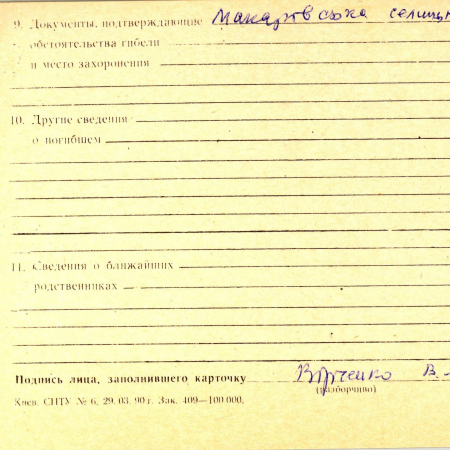 9. Документы, подтверждающие Макарівська селищн
обстоятельства гибели
и место захоронения
10. Другие сведения
о погибшем
11. Сведения о ближайших
родственниках
Подпись лица, заполнившего карточку В. 
(разборчиво)
Киев. СПТУ № 6, 29. 03. 90 г. Зак. 409—100 000.